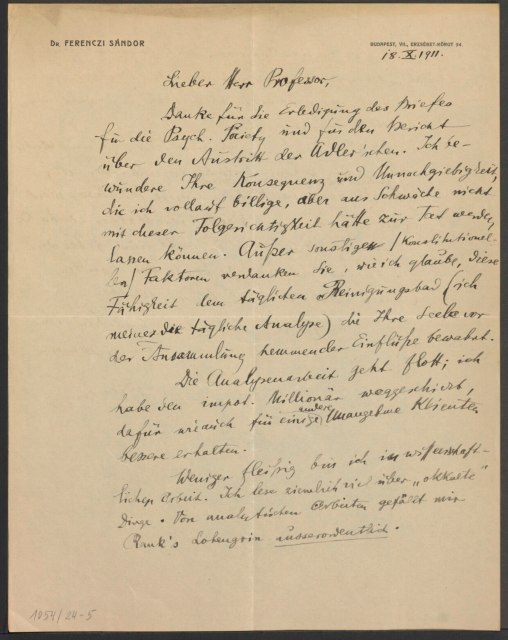 Dr. FERENCZI SÁNDOR
BUDAPEST, VII., ERZSÉBET-KÖRUT 54.
18. X. 1911.
Lieber Herr Professor,
Danke für die Erledigung des Briefes
für die Psych. Society und für den Bericht
über den Austritt der Adler'schen. Ich be-
wundere Ihre Konsequenz und Unnachgiebigkeit,
die ich vollauf billige, aber aus Schwäche nicht
mit dieser Folgerichtigkeit hätte zur Tat werden
lassen können. Außer sonstigen /Konstitutionel-
len/ Faktoren verdanken Sie, wie ich glaube, diese
Fähigkeit dem täglichen Reinigungsbad (ich
meine die tägliche Analyse) die Ihre Seele vor
der Ansammlung hemmender Einflüße bewahrt.
Die Analysenarbeit geht flott; ich
habe den impot. Millionär weggeschickt,
dafür wie auch für einige andere unangenehme Klienten
bessere erhalten.
Weniger fleißig bin ich in wissenschaft-
licher Arbeit. Ich lese ziemlich viel über „okkulte"
Dinge. Von analytischen Arbeiten gefällt mir
Rank's Lohengrin ausserordentlich.
1954/24-5